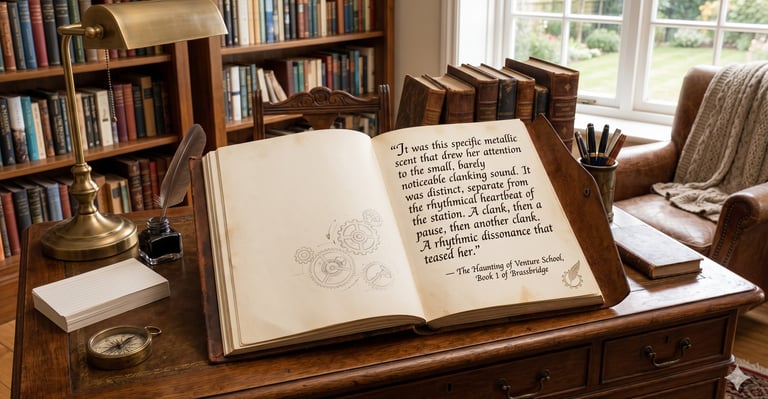 “It was this specific metallic
scent that drew her attention
to the small, barely
noticeable clanking sound. It
was distinct, separate from
the rhythmical heartbeat of
the station. A clank, then a
pause, then another clank.
A rhythmic dissonance that
teased her.”
— The Haunting of Venture School,
Book 1 of Brassbridge